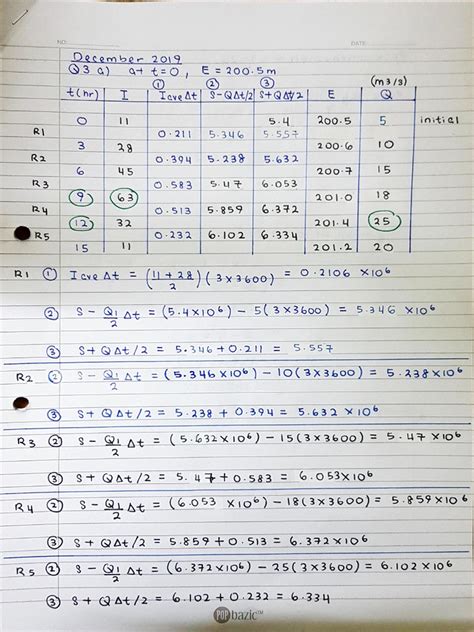 NO:
DATE:
December 2019
Q3 a) at t=0, E = 200.5m
① ② ③ (m3/s)
t(hr) I Iave Δt S-QΔt/2 S+QΔt/2 E Q
0 11 5.4 200.5 5 initial
R1 0.211 5.346 5.557
3 28 200.6 10
R2 0.394 5.238 5.632
6 45 200.7 15
R3 0.583 5.47 6.053
9 63 201.0 18
R4 0.513 5.859 6.372
12 32 201.4 25
R5 0.232 6.102 6.334
15 11 201.2 20
R1 ① Iave Δt = (11+28/2)(3×3600) = 0.2106 ×10⁶
② S - Q1/2 Δt = (5.4×10⁶) - 5(3×3600) = 5.346 ×10⁶
③ S+QΔt/2 = 5.346+0.211 = 5.557
R2 ② S - Q1/2 Δt = (5.346×10⁶) - 10(3×3600) = 5.238×10⁶
③ S+QΔt/2 = 5.238 + 0.394 = 5.632 ×10⁶
R3 ② S - Q1/2 Δt = (5.632×10⁶) - 15(3×3600) = 5.47 ×10⁶
③ S+QΔt/2 = 5.47 + 0.583 = 6.053×10⁶
R4 ② S - Q1/2 Δt = (6.053 ×10⁶) - 18(3×3600) = 5.859×10⁶
③ S+QΔt/2 = 5.859 + 0.513 = 6.372×10⁶
R5 ② S - Q1/2 Δt = (6.372×10⁶) - 25(3×3600) = 6.102 ×10⁶
③ S+QΔt/2 = 6.102 + 0.232 = 6.334
POP bazic™